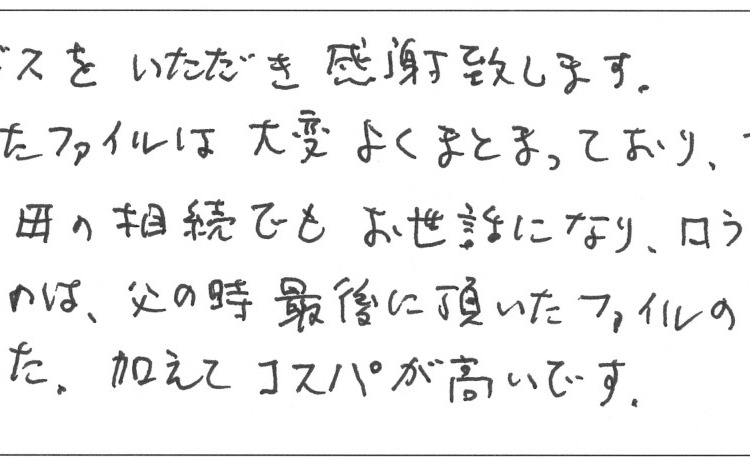 ビスをいただき 感謝致します。
たファイルは 大変 よくまとまっており、
母の相続でも お世話になり、ロう
のは、父の時 最後に頂いたファイルの
た。加えて コスパが高いです。